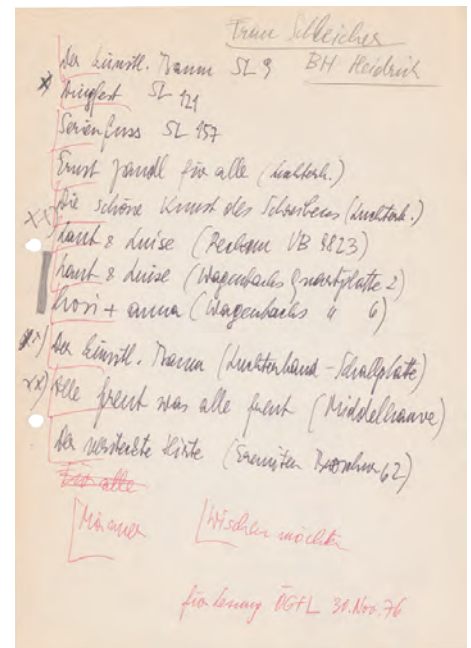 Frau Schleicher
BH Heidrich
Der künstl. Baum SL 9
x dingfest SL 121
Serienfuss SL 157
Ernst Jandl für alle (Luchterh.)
Die schöne Kunst des Schreibens (Luchterh.)
Laut & Luise (Reclam UB 9823)
Laut & Luise (Wagenbachs Quartplatte 2)
hosi + anna (Wagenbachs " 6)
xx) Der künstl. Baum (Luchterhand-Schallplatte)
xx) Alle freut was alle freut (Middelhauve)
Der versteckte Hirte (Eremiten Broschur 62)
Für alle
[Möraner [Wischen möchten
für Lesung ÖGfL 30. Nov. 76